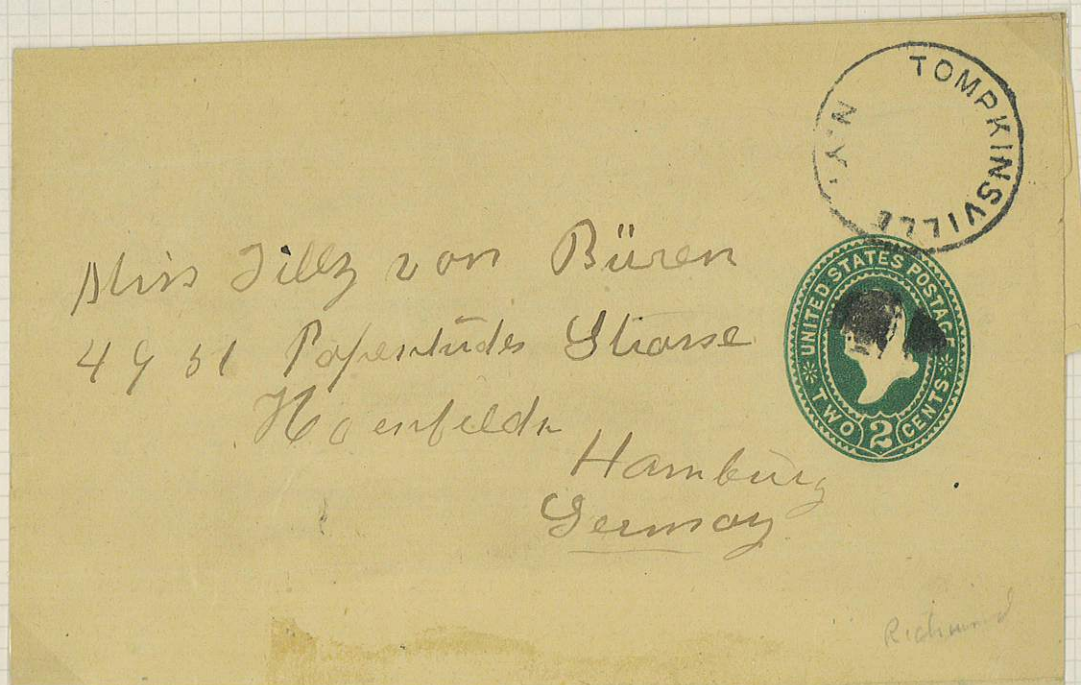 TOMPKINSVILLE N.Y.
UNITED STATES POSTAGE
TWO 2 CENTS
Miss Tilly von Büren
49 51 Papenhuder Strasse
Hohenfelde
Hamburg
Germany
Richmond